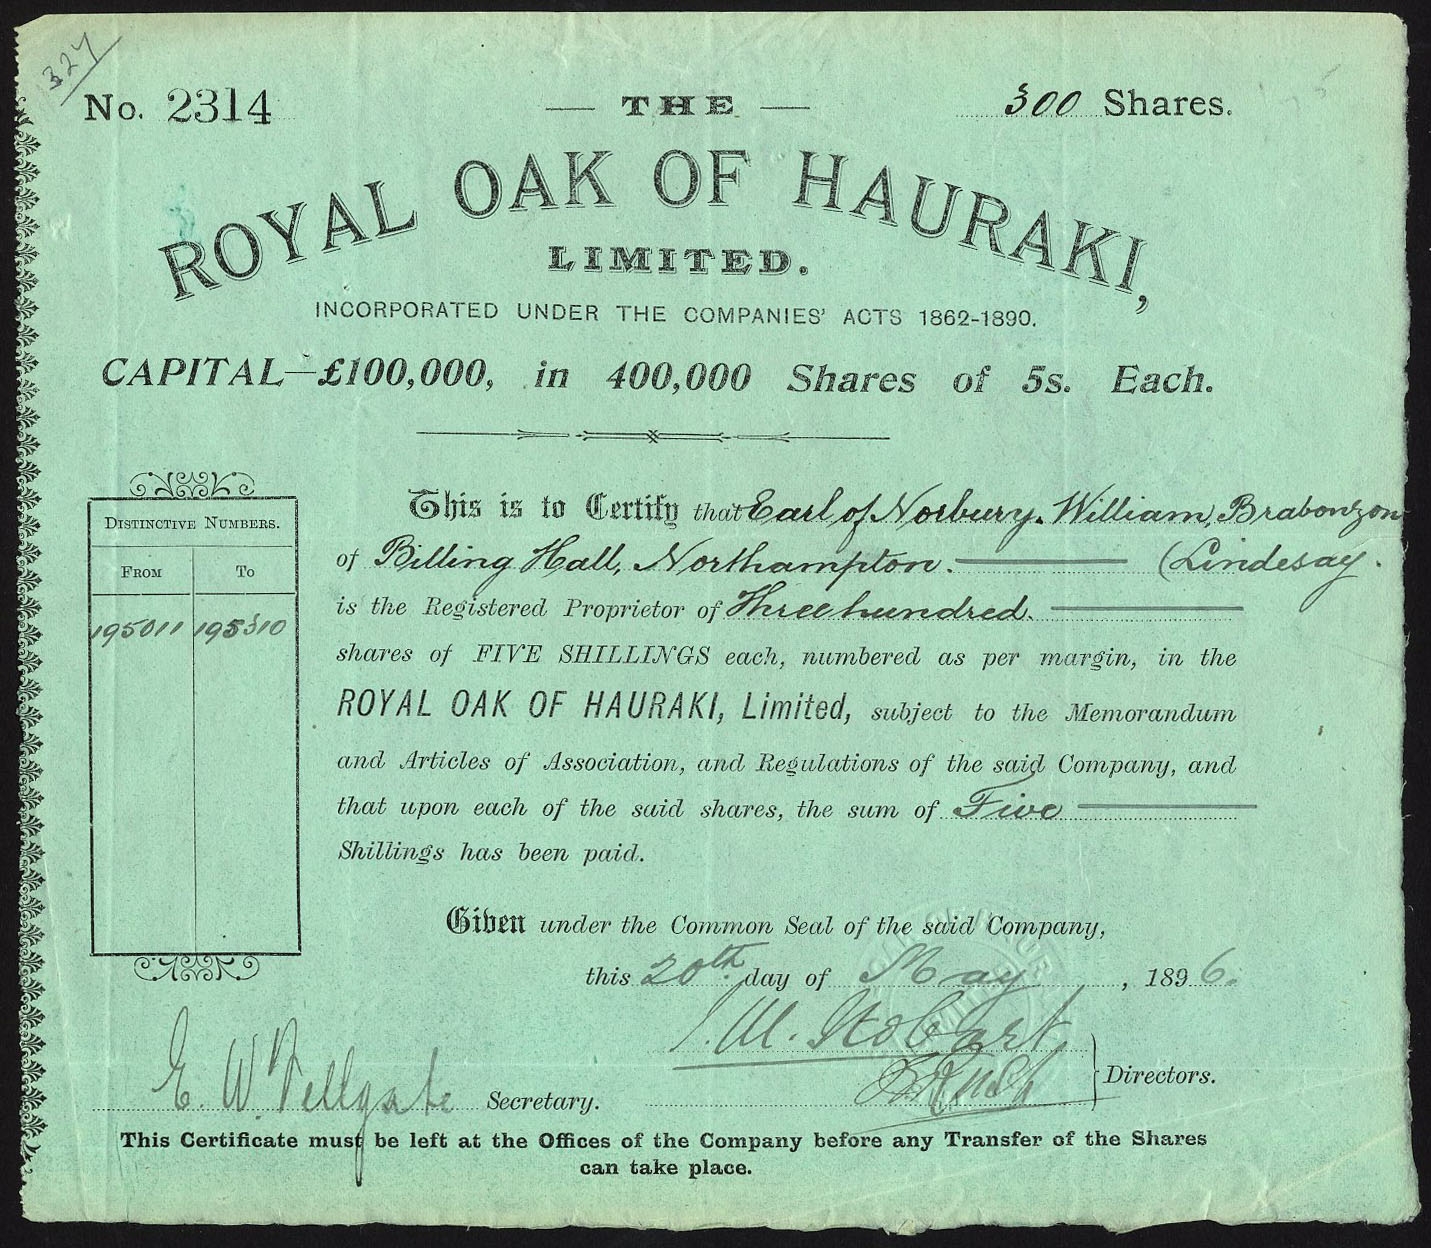 324
No. 2314
— THE —
300 Shares.
ROYAL OAK OF HAURAKI,
LIMITED.
INCORPORATED UNDER THE COMPANIES' ACTS 1862-1890.
CAPITAL—£100,000, in 400,000 Shares of 5s. Each.
DISTINCTIVE NUMBERS.
FROM TO
195011 195310
This is to Certify that Earl of Norbury. William, Brabonzon
of Billing Hall, Northampton. (Lindesay.
is the Registered Proprietor of Three hundred.
shares of FIVE SHILLINGS each, numbered as per margin, in the
ROYAL OAK OF HAURAKI, Limited, subject to the Memorandum
and Articles of Association, and Regulations of the said Company, and
that upon each of the said shares, the sum of Five
Shillings has been paid.
Given under the Common Seal of the said Company,
this 20th day of May, 1896.
Stobart
Directors.
E. W. Fellgate Secretary.
This Certificate must be left at the Offices of the Company before any Transfer of the Shares
can take place.